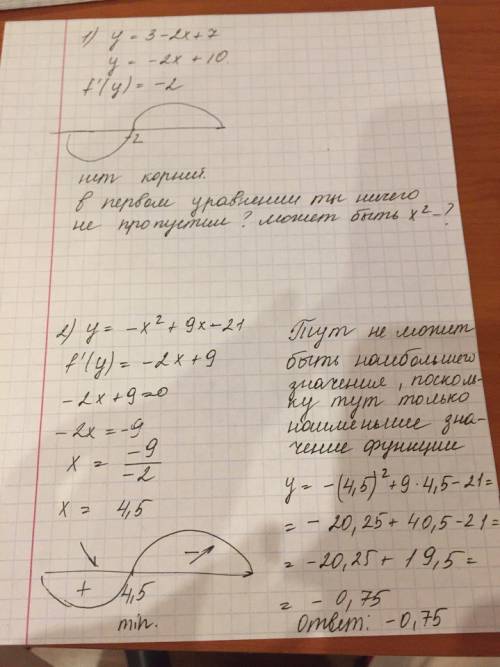 1) y = 3-2x+7
y = -2x+10.
f'(y) = -2
-2
нет корней.
в первом уравнении ты ничего
не пропустил? может быть x² -?
2) y = -x² + 9x - 21
f'(y) = -2x + 9
-2x+9=0
-2x = -9
x = -9/-2
x = 4,5
+ 4,5 -
min.
Тут не может
быть наибольшего
значения, посколь-
ку тут только
наименьшее зна-
чение функции
y = -(4,5)² + 9·4,5 - 21 =
= - 20,25 + 40,5 - 21 =
= -20,25 + 19,5 =
= - 0,75
Ответ: -0,75